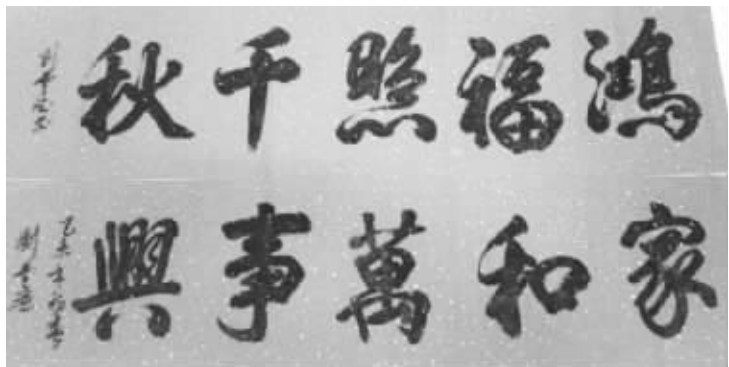 鴻福照千秋
家和萬事興